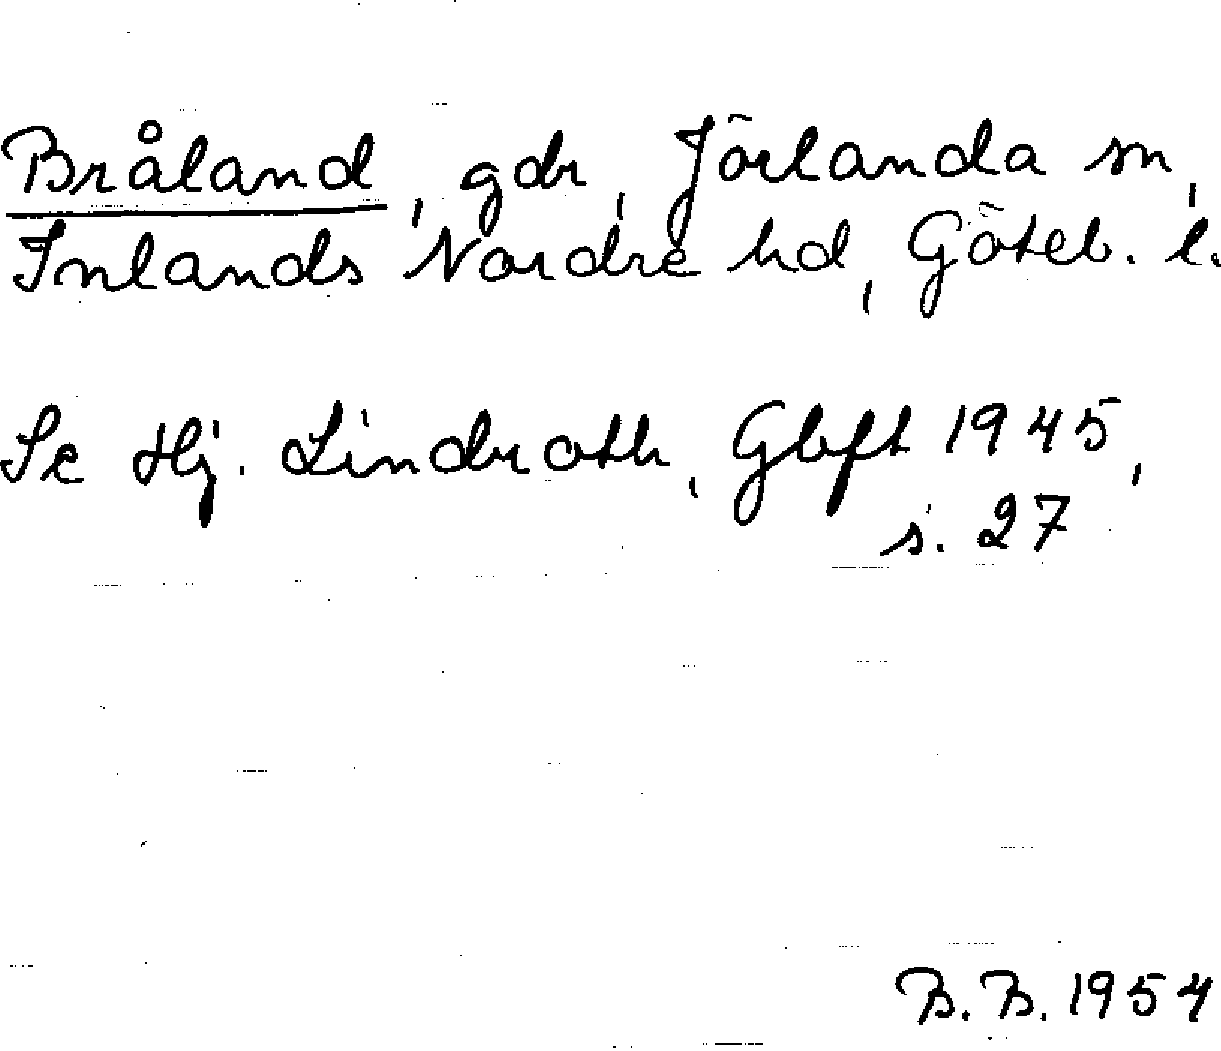 Bråland, gdr, Jörlanda sn,
Inlands Nordre hd, Göteb. l.
Se Hj. Lindroth, Gbft 1945,
s. 27
B.B. 1954